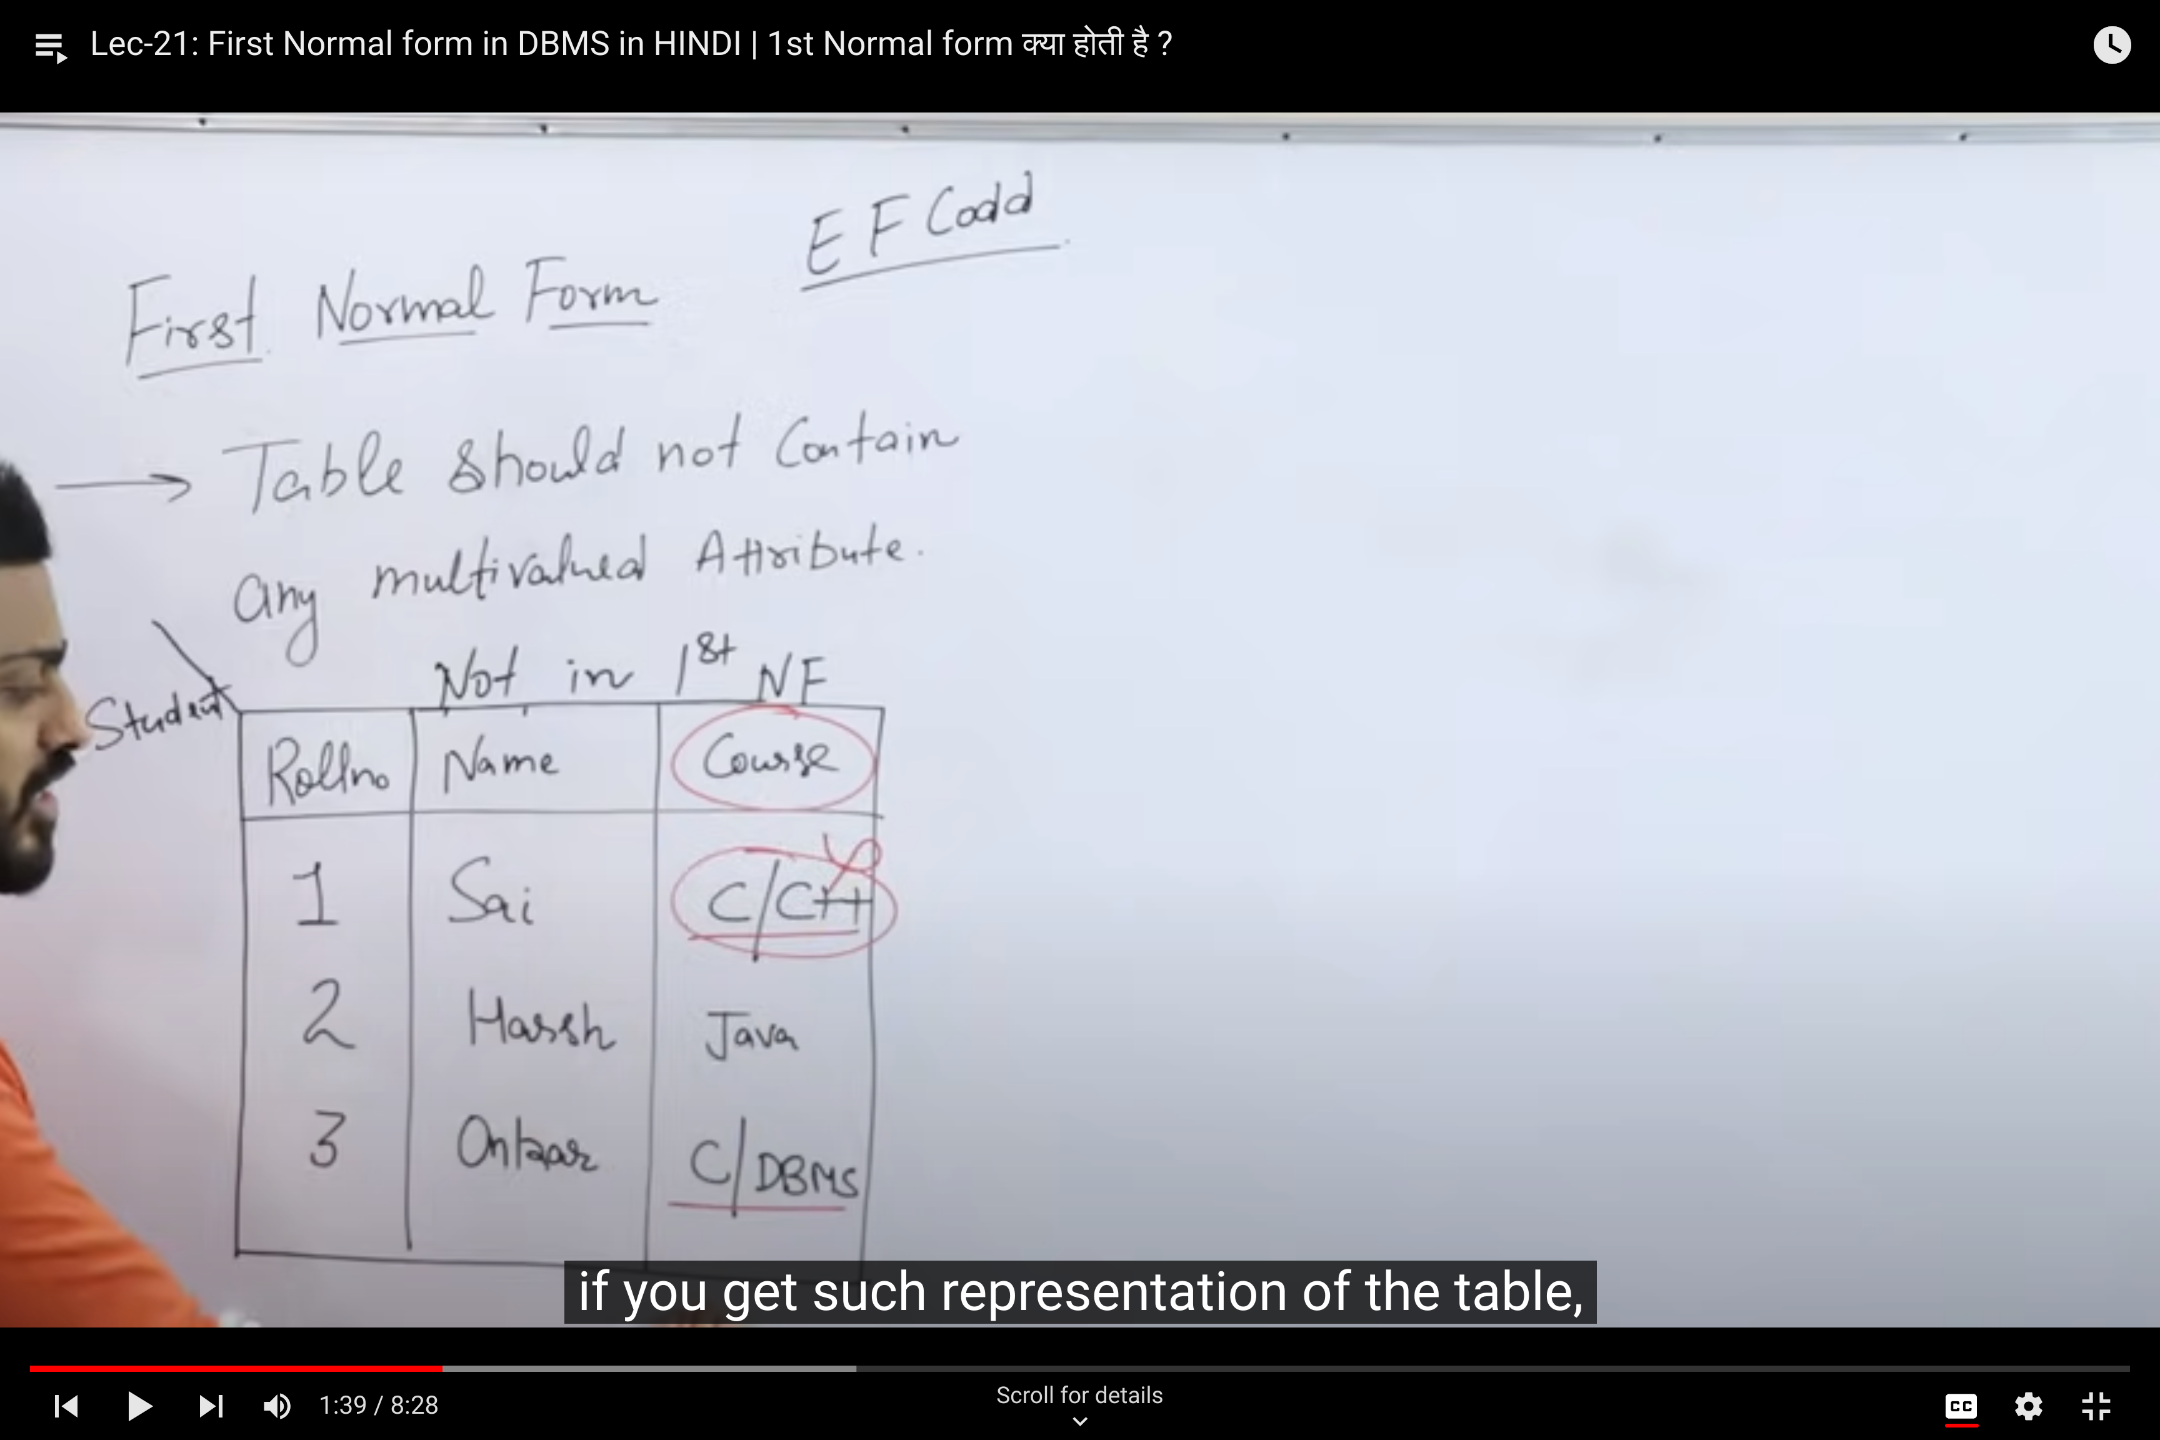 Lec-21: First Normal form in DBMS in HINDI | 1st Normal form क्या होती है ?
E F Codd
First Normal Form
Table should not Contain
any multivalued Attribute.
Not in 1st NF
Student
Rollno Name Course
1 Sai C/C++
2 Harsh Java
3 Onkar C/DBMS
if you get such representation of the table,
1:39 / 8:28
Scroll for details
CC